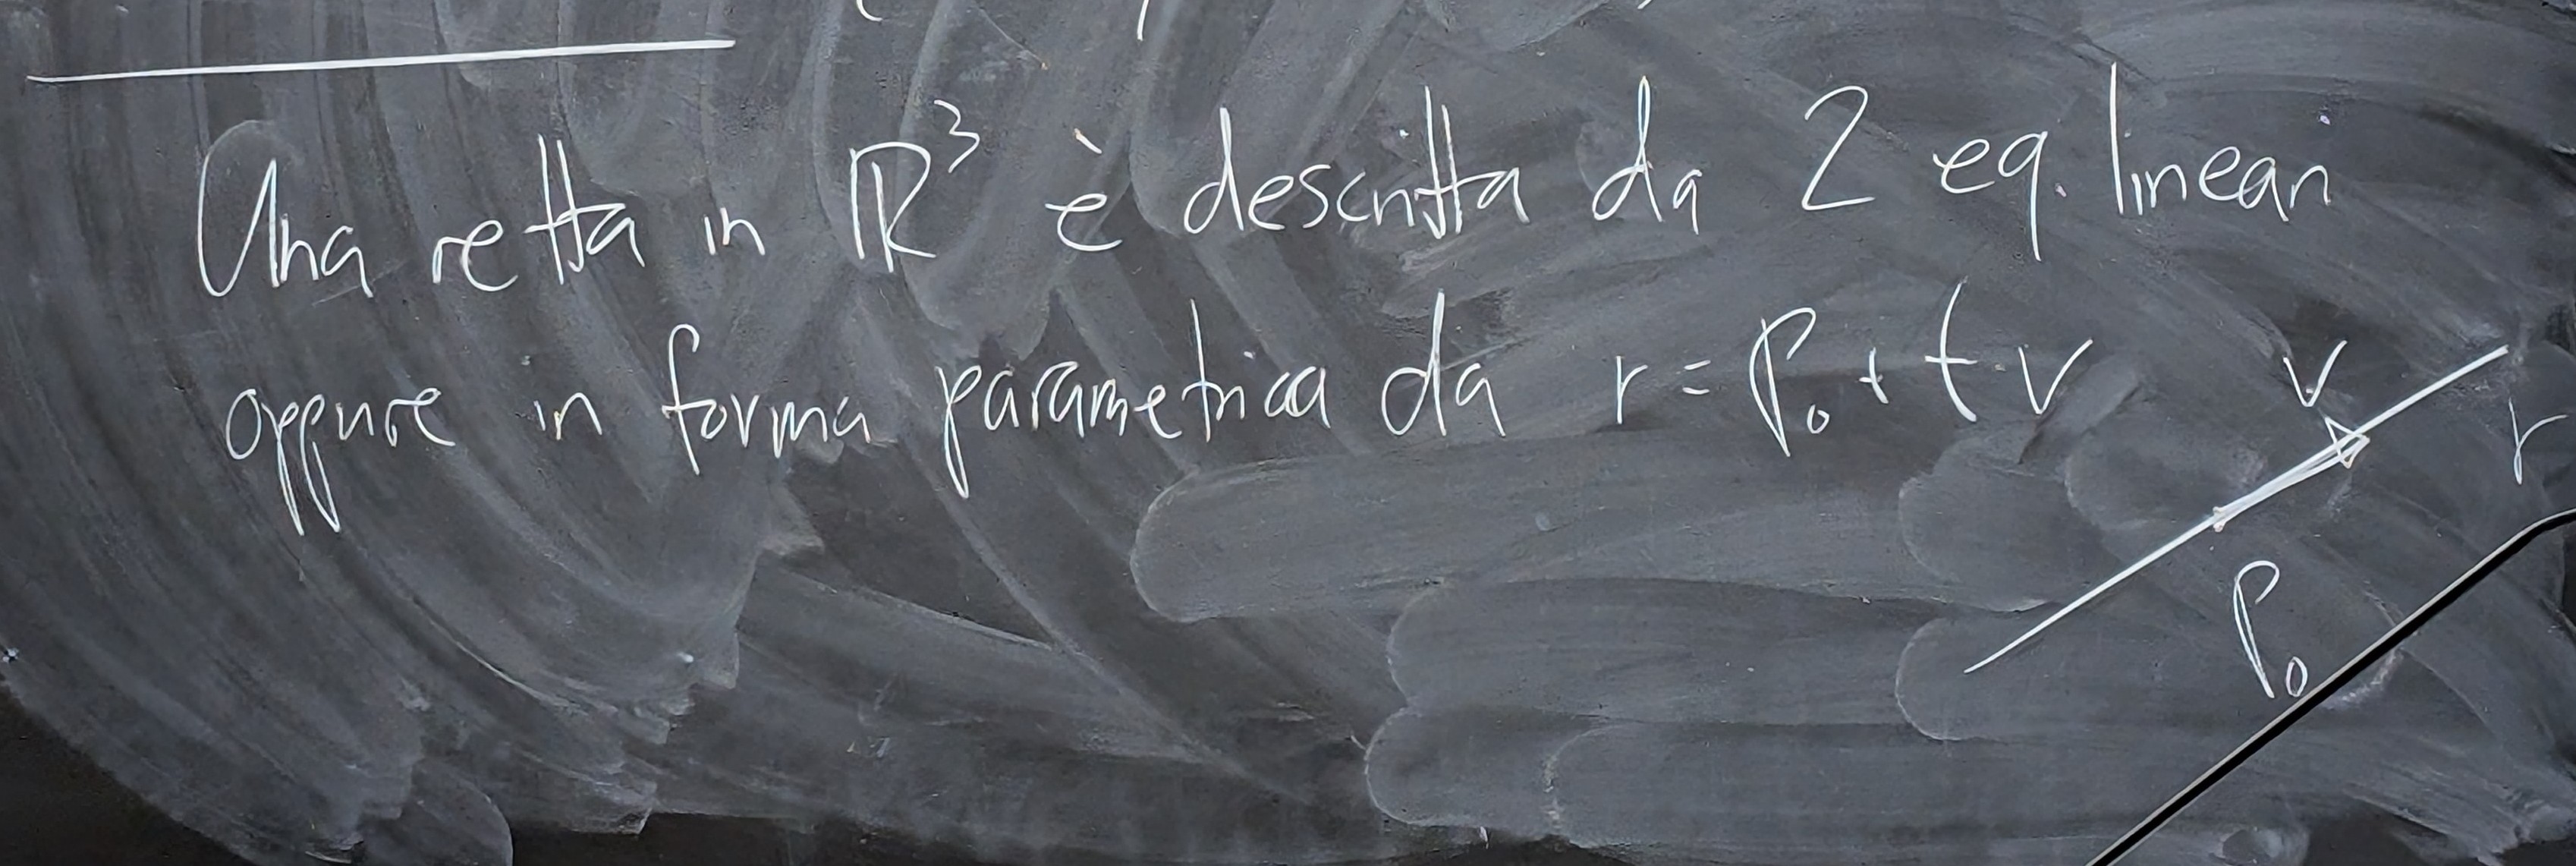 Una retta in ℝ³ è descritta da 2 eq. lineari
oppure in forma parametrica da r = P₀ + t·v
v
r
P₀